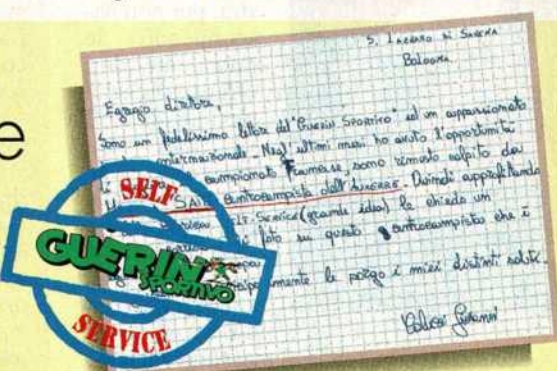 e
S. LAZZARO DI SAVENA
Bologna
Egregio direttore,
sono un fedelissimo lettore del "GUERIN SPORTIVO" ed un appassionato
internazionale. Negl'ultimi mesi ho avuto l'opportunità
di campionato francese, sono rimasto colpito da
centrocampista dell'AUXERRE. Quindi approfittando
SELF-SERVICE (grande idea) le chiedo un
foto su questo centrocampista che è
le porgo i miei distinti saluti.
SELF
GUERIN
SPORTIVO
SERVICE